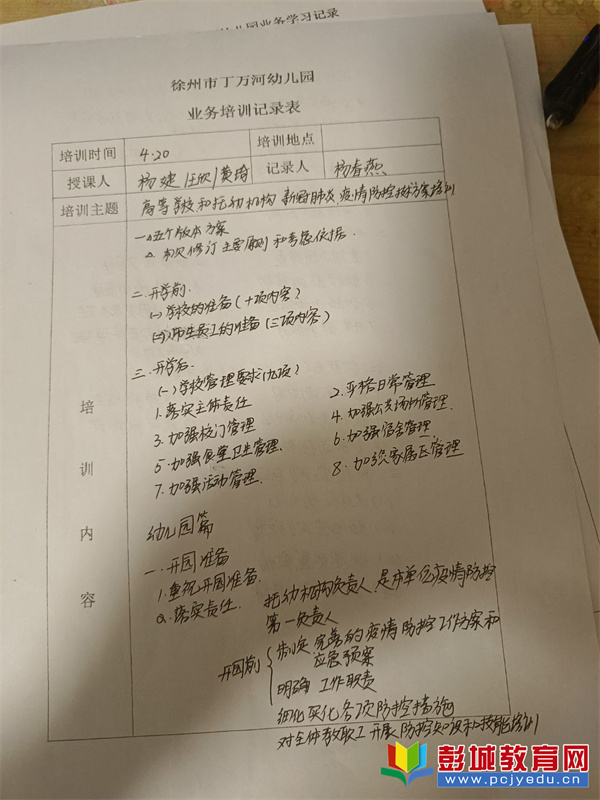 幼儿园业务学习记录
徐州市丁万河幼儿园
业务培训记录表
培训时间 4.20 培训地点
授课人 杨建 汪欣 黄琦 记录人 杨春燕
培训主题 高等学校和托幼机构新冠肺炎疫情防控技术方案培训
培训内容
一.五个版本方案
2. 本次修订主要原则和考虑依据.
二.开学前.
(一)学校的准备(十项内容)
(二)师生员工的准备(三项内容)
三.开学后.
(一)学校管理要求(九项)
1.落实主体责任 2.严格日常管理
3.加强校门管理 4.加强公共场所管理.
5.加强食堂卫生管理. 6.加强宿舍管理.
7.加强活动管理. 8.加强家属区管理
幼儿园篇
一.开园准备
1.重视开园准备.
2.落实责任. 托幼机构负责人是本单位疫情防控
第一负责人
开园前 制定完善的疫情防控工作方案和
应急预案
明确工作职责
细化实化各项防控措施
对全体教职工开展防控知识和技能培训
彭城教育网
www.pcjyedu.cn